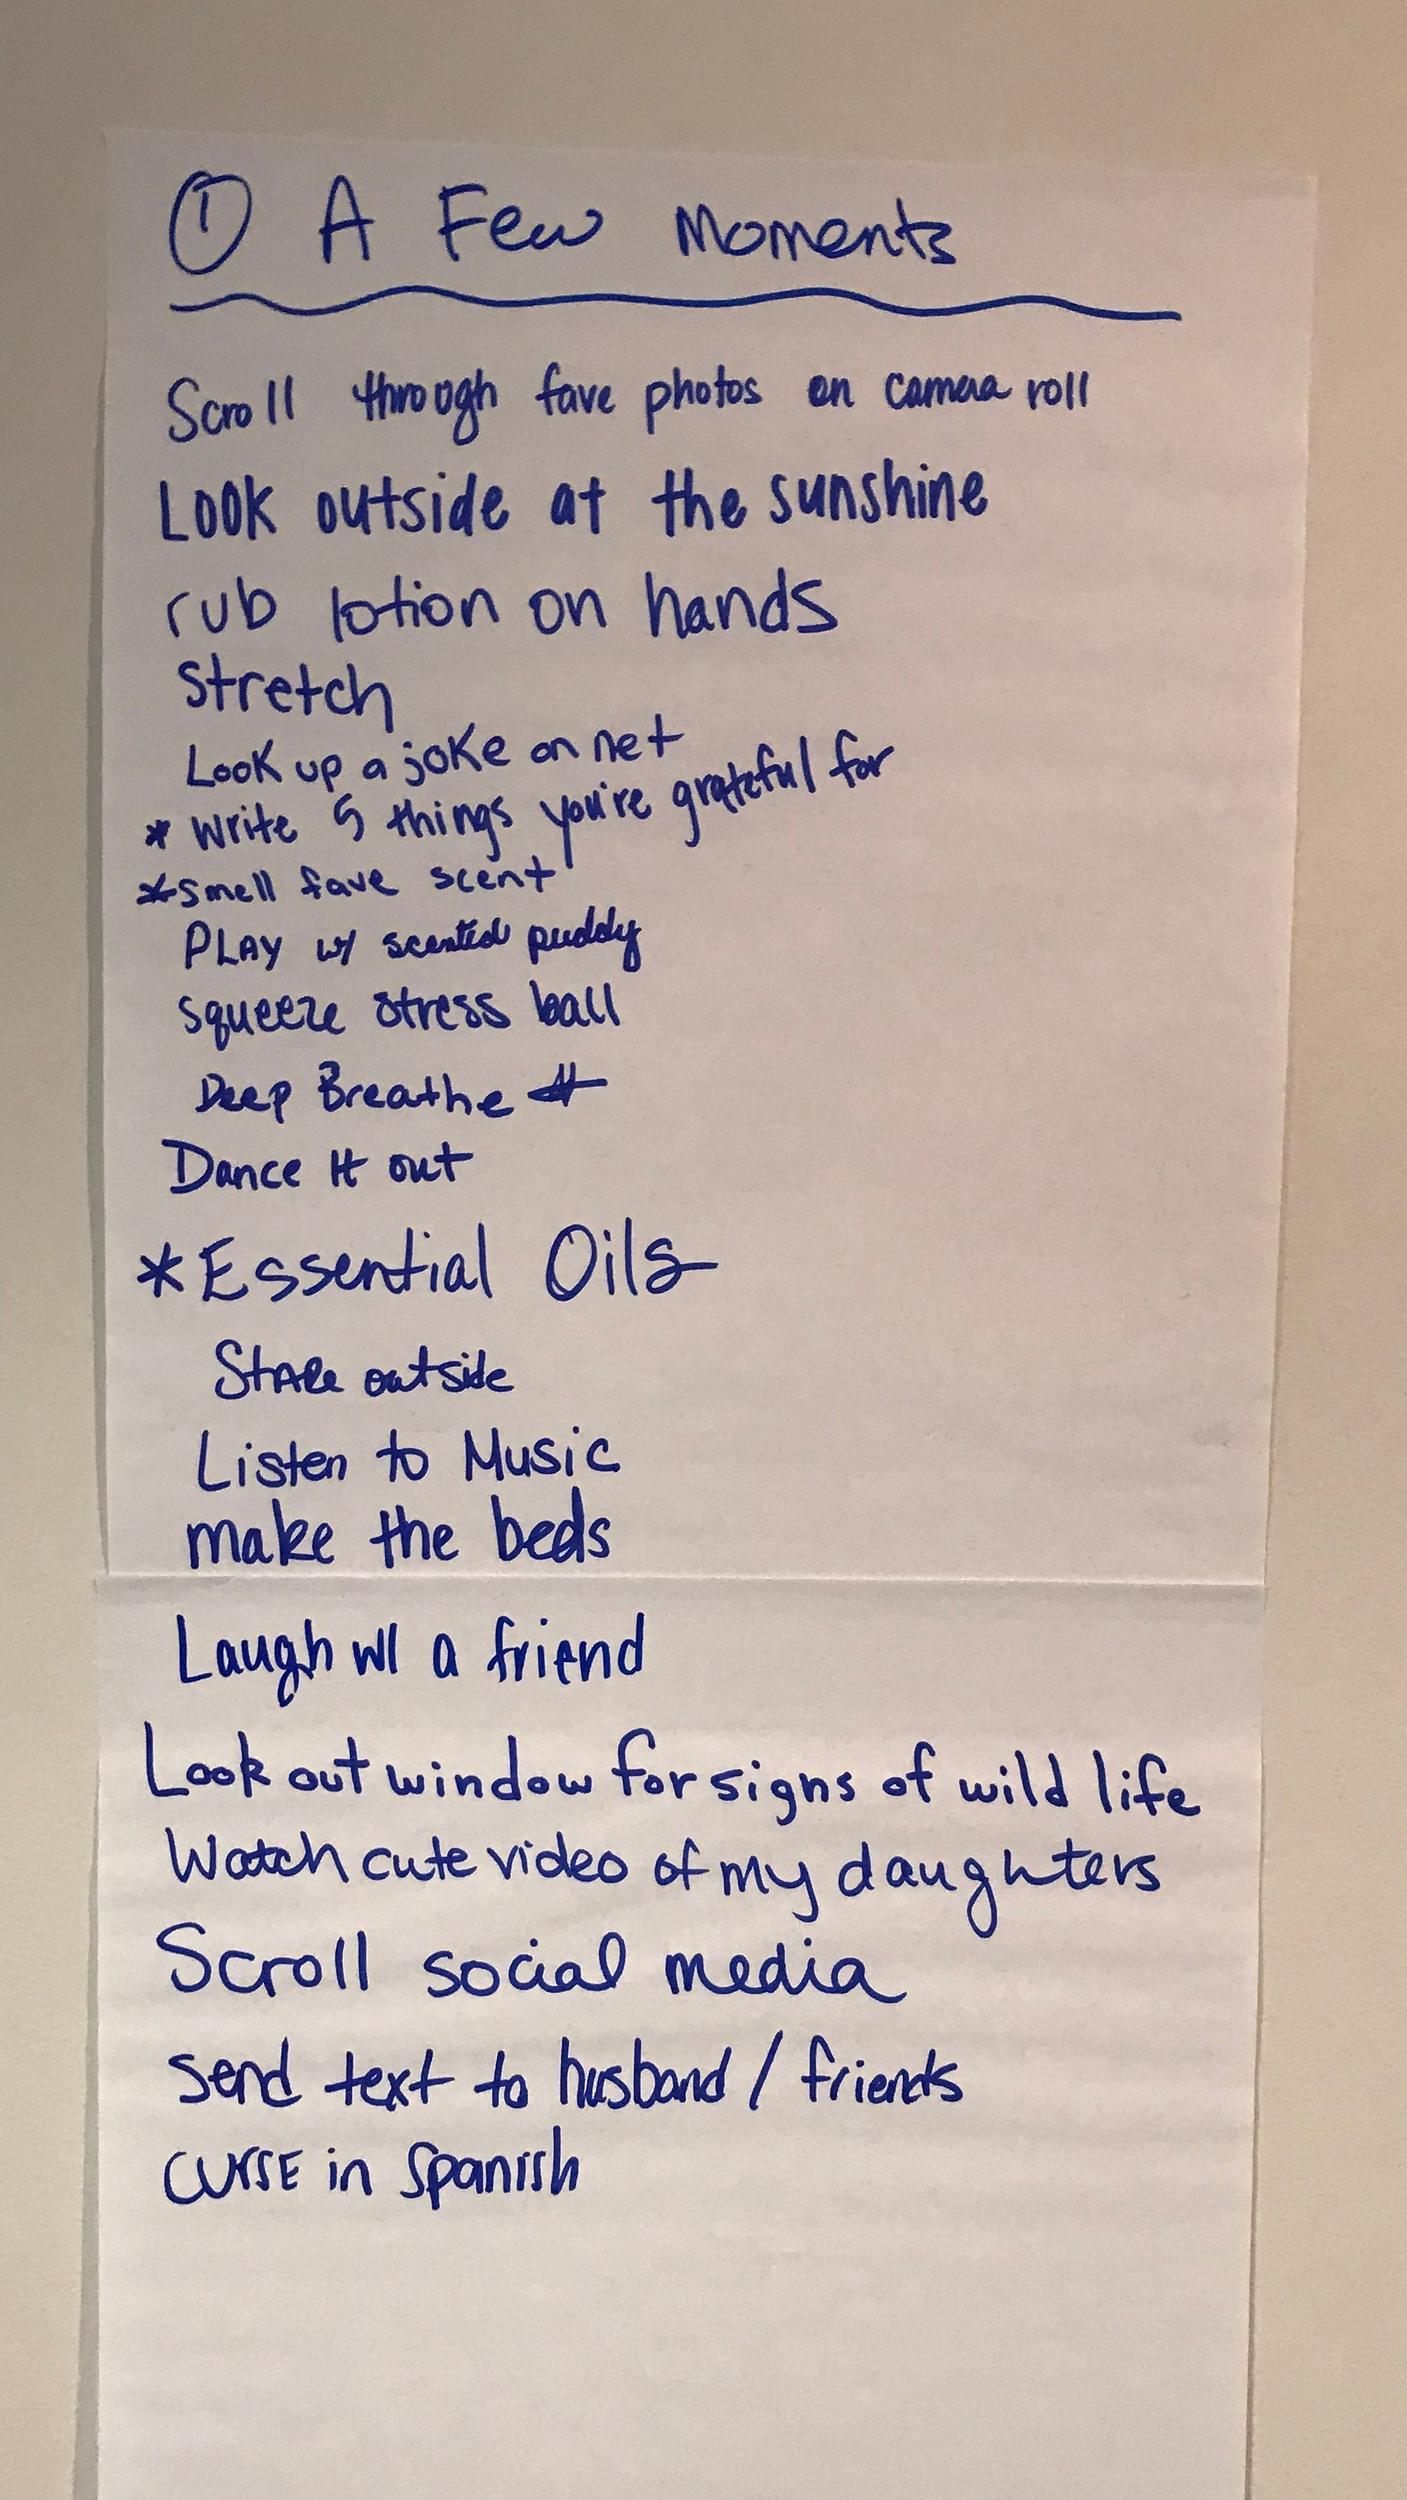 ① A Few Moments
Scroll through fave photos on camera roll
Look outside at the sunshine
rub lotion on hands
stretch
Look up a joke on net
* Write 5 things you're grateful for
* smell fave scent
PLAY w/ scented puddy
squeeze stress ball
Deep Breathe #
Dance It out
* Essential Oils
Stare outside
Listen to Music
make the beds
Laugh w/ a friend
Look out window for signs of wild life
Watch cute video of my daughters
Scroll social media
Send text to husband / friends
CURSE in Spanish